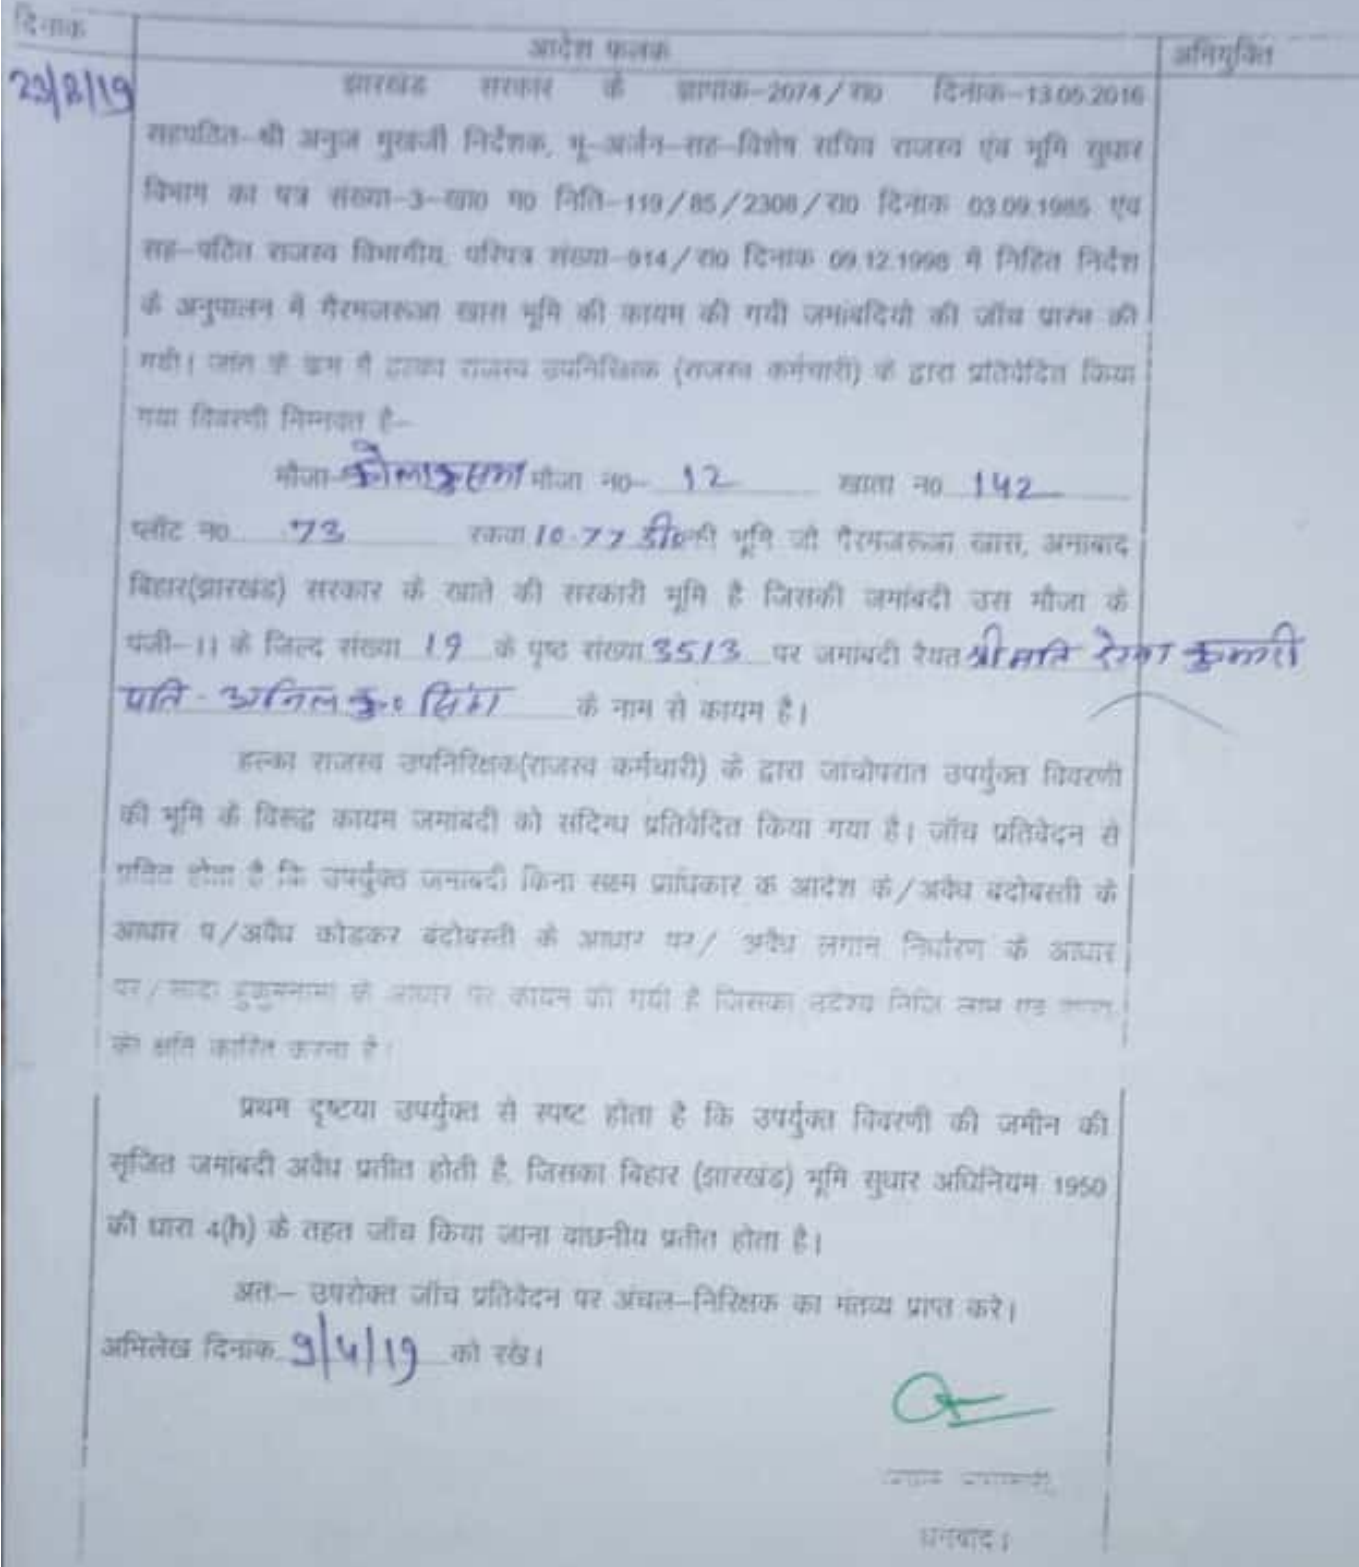 दिनांक
आदेश फलक
अभियुक्ति
23/2/19
झारखंड सरकार के ज्ञापांक-2074/रा० दिनांक-13.05.2016
सहपठित-श्री अनुज मुखर्जी निर्देशक, भू-अर्जन-सह-विशेष सचिव राजस्व एंव भूमि सुधार
विभाग का पत्र संख्या-3-खा० म० निति-119/85/2308/रा० दिनांक 03.09.1985 एंव
सह-पठित राजस्व विभागीय, परिपत्र संख्या-914/रा० दिनांक 09.12.1998 में निहित निर्देश
के अनुपालन में गैरमजरूआ खास भूमि की कायम की गयी जमांबदियो की जॉच प्रारंभ की
गयी। जांच के क्रम में हल्का राजस्व उपनिरिक्षक (राजस्व कर्मचारी) के द्वारा प्रतिवेदित किया
गया विवरणी निम्नवत है-
मौजा- कोलाकुसमा मौजा न०- 12 खाता न० 142
प्लॉट न० 73 रकवा 10.77 डी० की भूमि जो गैरमजरूआ खास, अनाबाद
बिहार(झारखंड) सरकार के खाते की सरकारी भूमि है जिसकी जमांबदी उस मौजा के
पंजी-11 के जिल्द संख्या 19 के पृष्ठ संख्या 3513 पर जमांबदी रैयत श्रीमति रेखा कुमारी
पति - अनिल कु० सिंह के नाम से कायम है।
हल्का राजस्व उपनिरिक्षक(राजस्व कर्मचारी) के द्वारा जाचोपरांत उपर्युक्त विवरणी
की भूमि के विरूद्ध कायम जमांबदी को संदिग्ध प्रतिवेदित किया गया है। जॉच प्रतिवेदन से
प्रतित होता है कि उपर्युक्त जमांबदी किना सक्ष्म प्राधिकार क आदेश के/अवैध बंदोबस्ती के
आधार प/अवैध कोडकर बंदोबस्ती के आधार पर/ अवैध लगान निर्धारण के आधार
पर/सादा हुकुमनामा के आधार पर कायम की गयी है जिसका उदेश्य निजि लाभ एंव
को क्षति कारित करना है।
प्रथम दृष्टया उपर्युक्त से स्पष्ट होता है कि उपर्युक्त विवरणी की जमीन की
सृजित जमांबदी अवैध प्रतीत होती है, जिसका बिहार (झारखंड) भूमि सुधार अधिनियम 1950
की धारा 4(h) के तहत जॉच किया जाना वांछनीय प्रतीत होता है।
अतः- उपरोक्त जॉच प्रतिवेदन पर अंचल-निरिक्षक का मंतव्य प्राप्त करे।
अभिलेख दिनांक 9/4/19 को रखे।
धनबाद।